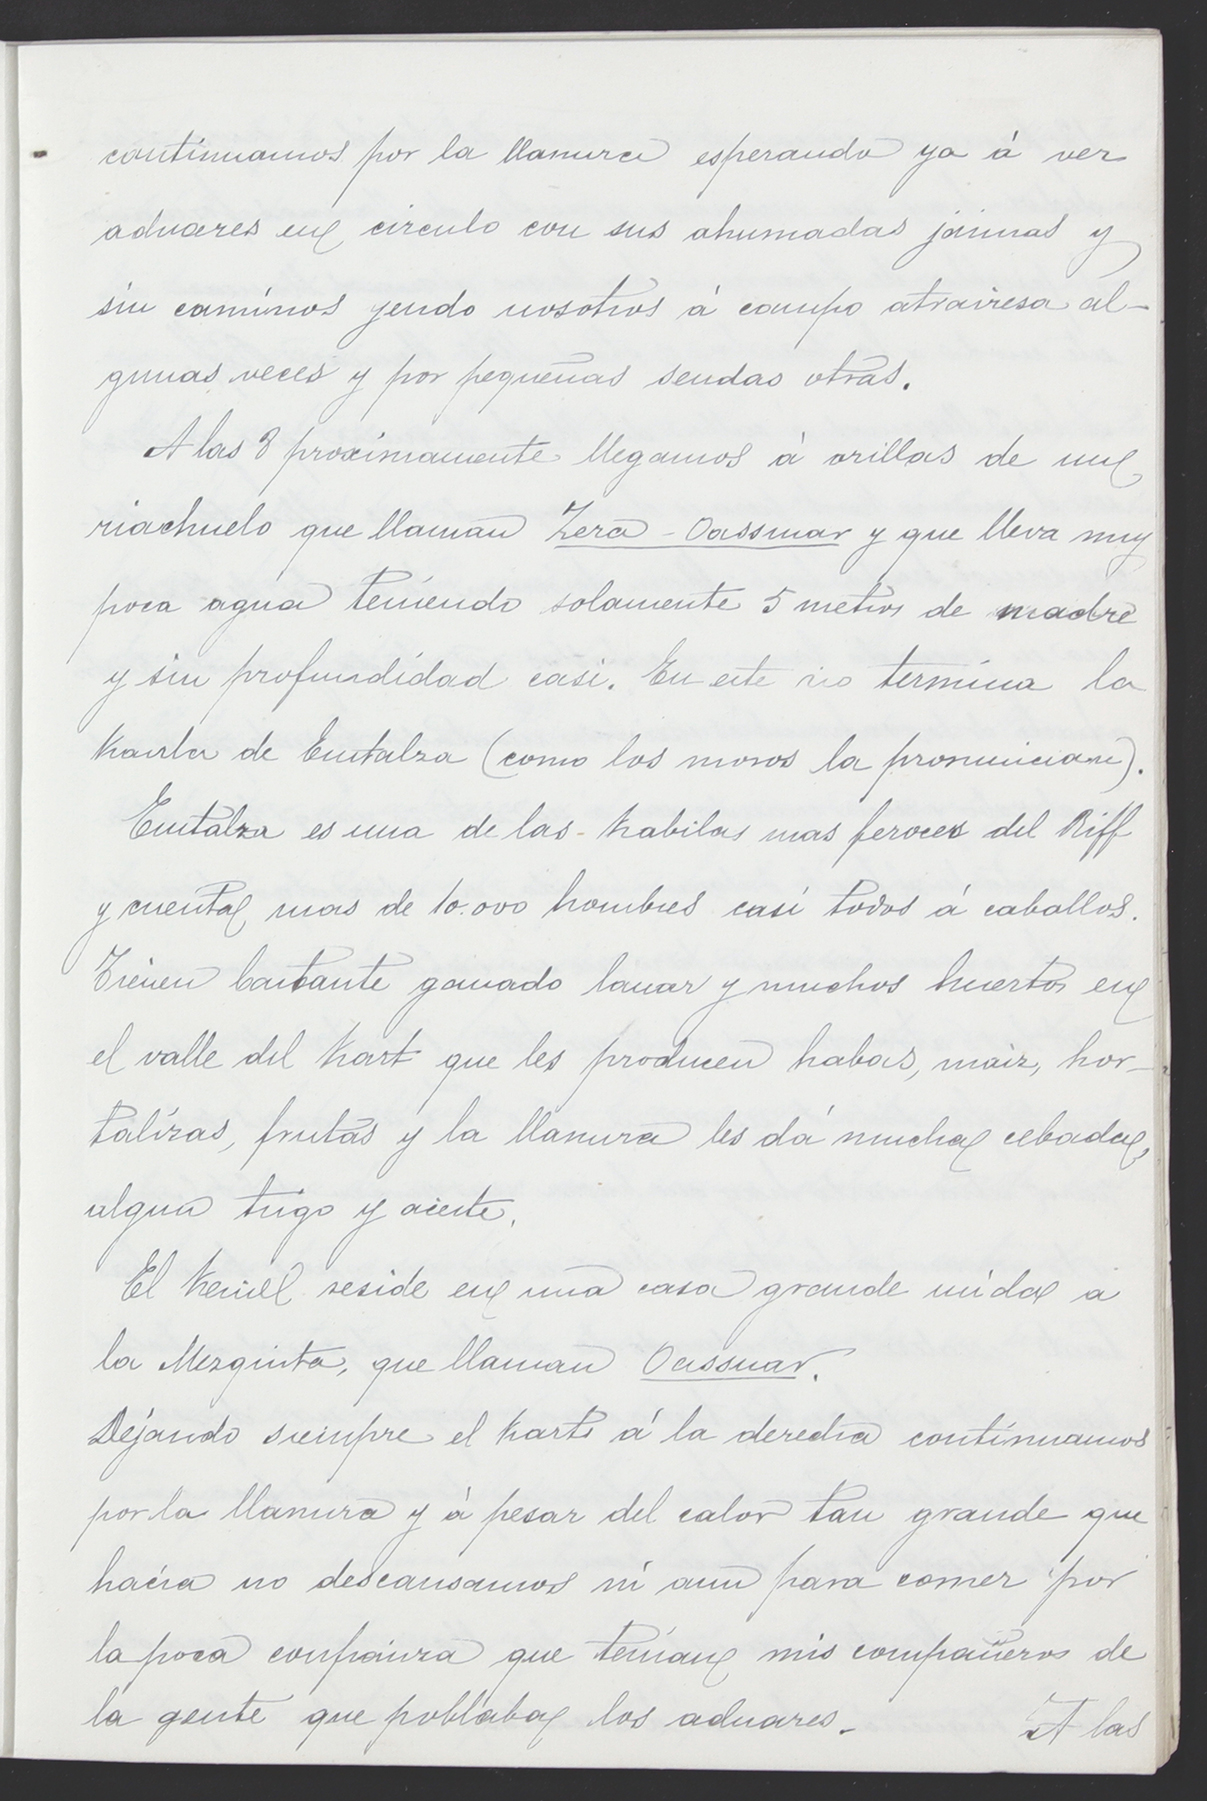 continuamos por la llanura esperando ya á ver
aduares en circulo con sus ahumadas jaimas y
sin caminos yendo nosotros á campo atraviesa al-
gunas veces y por pequeñas sendas otras.
A las 8 proximamente llegamos á orillas de un
riachuelo que llaman Zera - Oassuar y que lleva muy
poca agua teniendo solamente 5 metros de madre
y sin profundidad casi. En este rio termina la
Kavila de Emtalza (como los moros la pronuncian).
Emtalza es una de las Kabilas mas feroces del Riff
y cuenta mas de 10.000 hombres casi todos á caballos.
Tienen bastante ganado lanar y muchos huertos en
el valle del Kart que les producen habas, maiz, hor-
talizas, frutas y la llanura les dá mucha cebada,
algun trigo y aceite.
El reside en una casa grande unida a
la Mezquita, que llaman Oassuar.
Dejando siempre el Kart á la derecha continuamos
por la llanura y á pesar del calor tan grande que
hacia no descansamos ni aun para comer por
la poca confianza que tenian mis compañeros de
la gente que poblaba los aduares.
A las